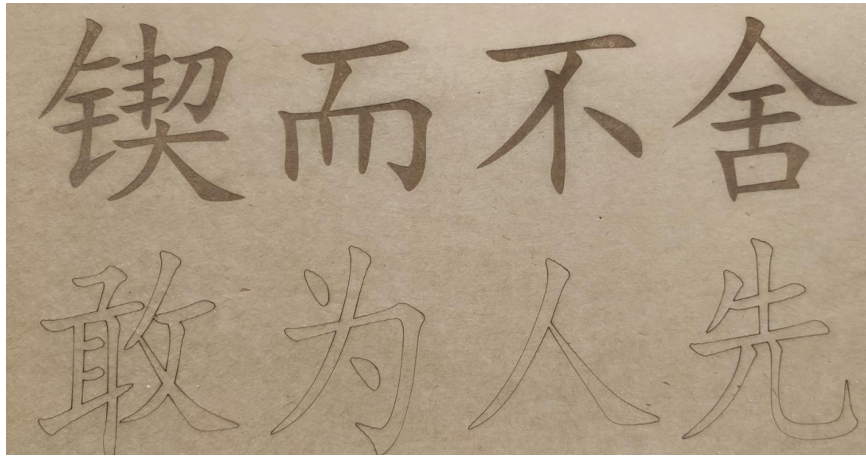 锲而不舍
敢为人先